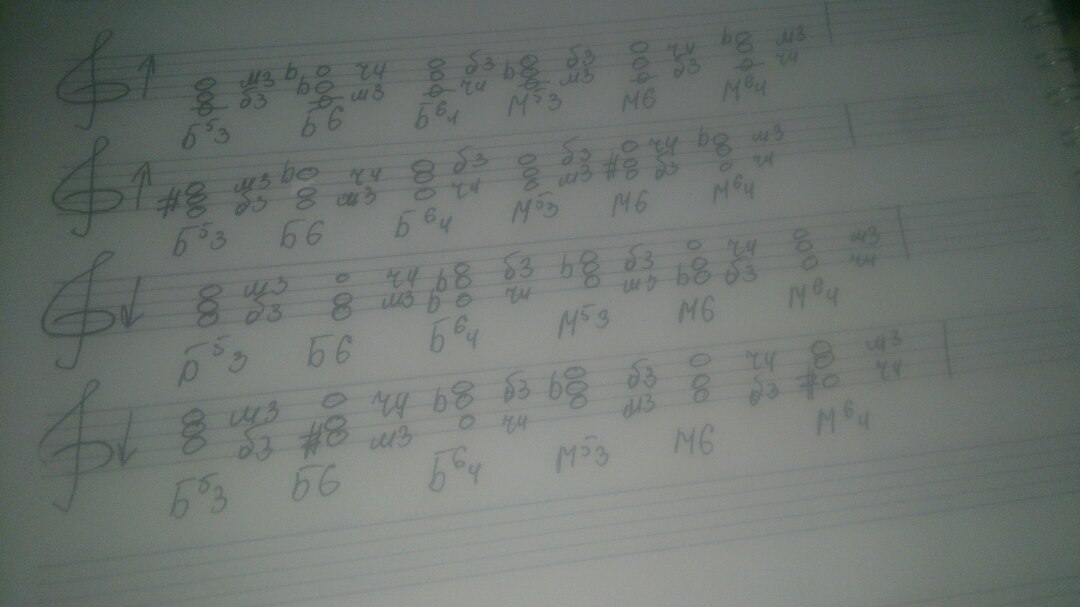 м3 ч4 б3 б3 ч4 м3
б3 м3 ч4 м3 б3 ч4
Б53 Б6 Б64 М53 М6 М64
м3 ч4 б3 б3 ч4 м3
б3 м3 ч4 м3 б3 ч4
Б53 Б6 Б64 М53 М6 М64
м3 ч4 б3 б3 ч4 м3
б3 м3 ч4 м3 б3 ч4
Б53 Б6 Б64 М53 М6 М64
м3 ч4 б3 б3 ч4 м3
б3 м3 ч4 м3 б3 ч4
Б53 Б6 Б64 М53 М6 М64